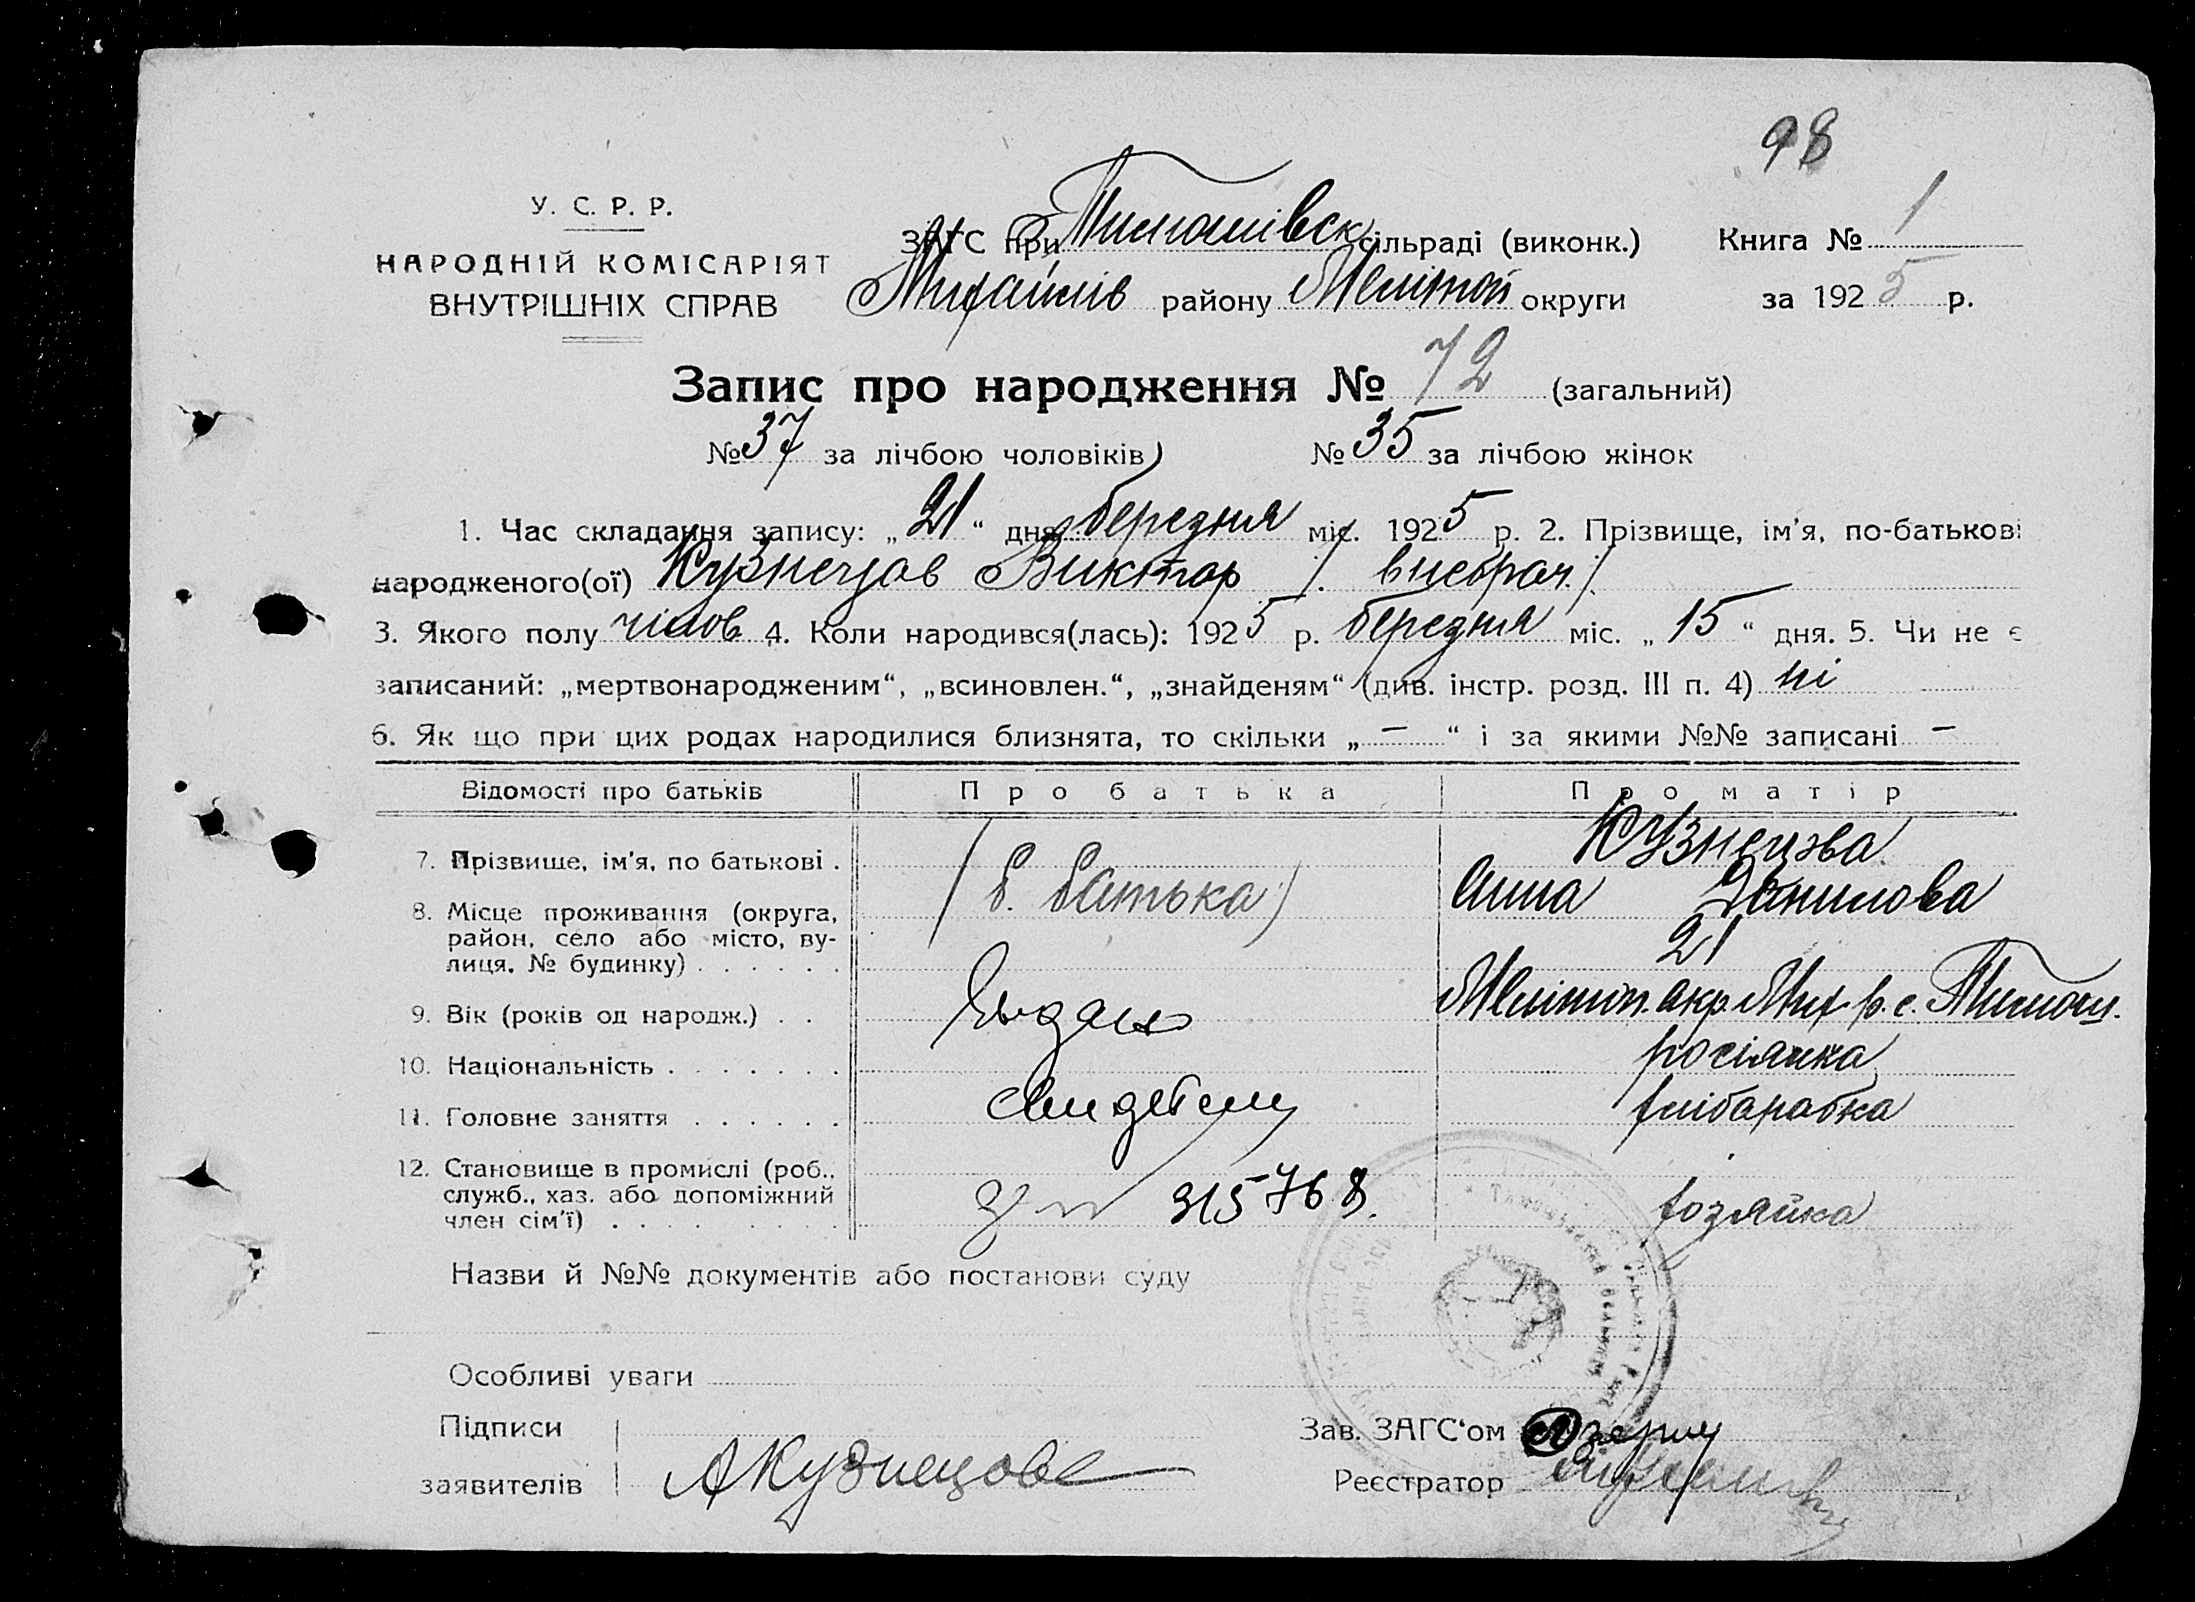 98
У. С. Р. Р.
НАРОДНІЙ КОМІСАРІЯТ
ВНУТРІШНІХ СПРАВ
ЗАГС при Тимошівск сільраді (виконк.) Книга № 1
Михайлів району Мелітоп округи за 1925 р.
Запис про народження № 72 (загальний)
№ 37 за лічбою чоловіків) № 35 за лічбою жінок
1. Час складання запису: „21“ дня березня міс. 1925 р. 2. Прізвище, ім'я, по-батькові
народженого(ої) Кузнецов Виктор /. внебрач./
3. Якого полу чілов 4. Коли народився(лась): 1925 р. березня міс. „15“ дня. 5. Чи не є
записаний: „мертвонародженим“, „всиновлен.“, „знайденям“ (див. інстр. розд. III п. 4) ні
6. Як що при цих родах народилися близнята, то скільки „ — “ і за якими №№ записані —
Відомості про батьків Про батька Про матір
7. Прізвище, ім'я, по батькові . (б. батька) Кузнецова
Анна Данилова
8. Місце проживання (округа,
район, село або місто, ву-
лиця, № будинку) . . . . . . 21
9. Вік (років од народж.) . . Выдан Мелітоп. окр. Мих. р. с. Тимош.
10. Національність . . . . . . . росіянка
11. Головне заняття . . . . . . хліборобка
12. Становище в промислі (роб.,
служб., хаз. або допоміжний
член сім'ї) . . . . . . . . 315768. хозяйка
Назви й №№ документів або постанови суду
Особливі уваги
Підписи Зав. ЗАГС'ом
заявителів АКузнецова Реєстратор